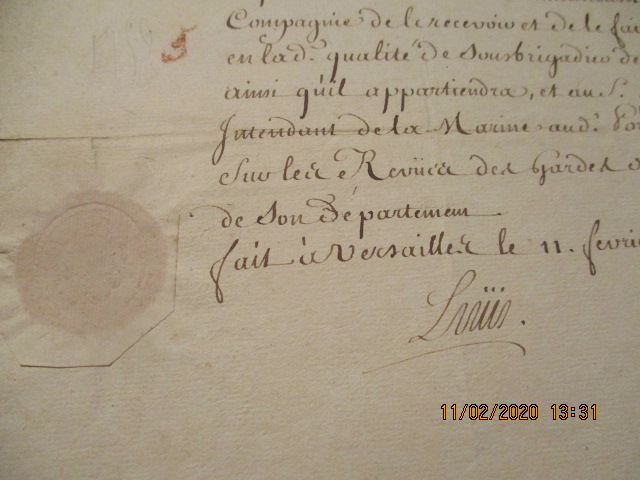 Compagnie de le recevoir et de le fai
en lad. qualité de Sousbrigadier de
ainsi qu'il appartiendra, et au S.
Intendant de la Marine aud.
Sur les Revües des Gardes
de Son Département
fait à Versailles le 11. fevri
Loüis.
11/02/2020 13:31